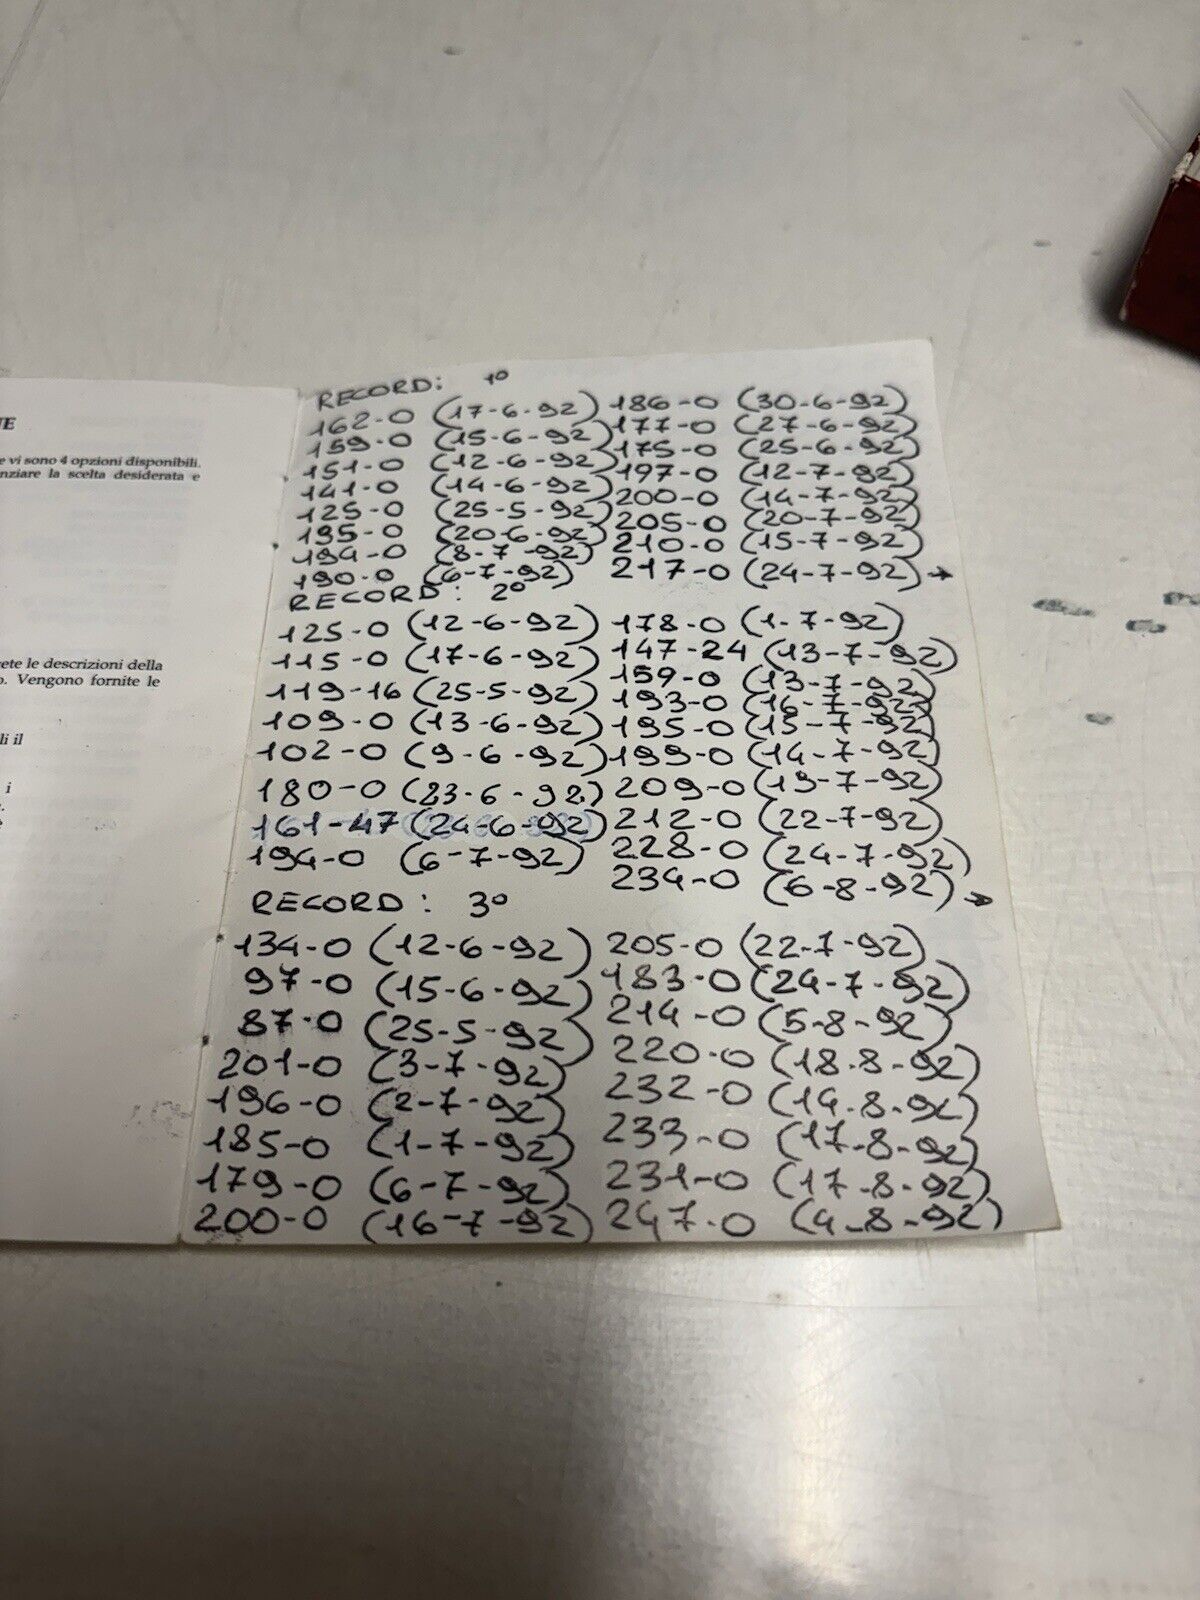 NE
e vi sono 4 opzioni disponibili.
nziare la scelta desiderata e
ete le descrizioni della
o. Vengono fornite le
li il
i
RECORD: 1º
162-0 (17-6-92) 186-0 (30-6-92)
159-0 (15-6-92) 177-0 (27-6-92)
151-0 (12-6-92) 175-0 (25-6-92)
141-0 (14-6-92) 197-0 (12-7-92)
125-0 (25-5-92) 200-0 (14-7-92)
195-0 (20-6-92) 205-0 (20-7-92)
194-0 (8-7-92) 210-0 (15-7-92)
190-0 (6-7-92) 217-0 (24-7-92)→
RECORD: 2º
125-0 (12-6-92) 178-0 (1-7-92)
115-0 (17-6-92) 147-24 (13-7-92)
119-16 (25-5-92) 159-0 (13-7-92)
109-0 (13-6-92) 193-0 (16-7-92)
102-0 (9-6-92) 195-0 (15-7-92)
180-0 (23-6-92) 199-0 (14-7-92)
161-47 (24-6-92) 209-0 (19-7-92)
194-0 (6-7-92) 212-0 (22-7-92)
228-0 (24-7-92)
234-0 (6-8-92)→
RECORD: 3º
134-0 (12-6-92) 205-0 (22-7-92)
97-0 (15-6-92) 183-0 (24-7-92)
87-0 (25-5-92) 214-0 (5-8-92)
201-0 (3-7-92) 220-0 (18-8-92)
196-0 (2-7-92) 232-0 (14-8-92)
185-0 (1-7-92) 233-0 (17-8-92)
179-0 (6-7-92) 231-0 (17-8-92)
200-0 (16-7-92) 247-0 (4-8-92)